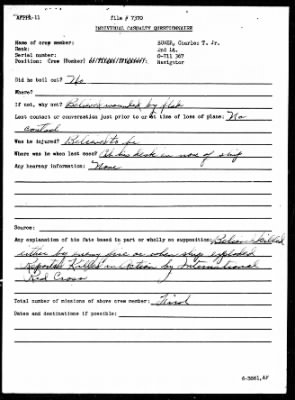 AFPPA-11 file # 7370
INDIVIDUAL CASUALTY QUESTIONNAIRE
Name of crew member: Charles T. Jr.
Rank: 2nd Lt.
Serial number: 367
Position: Crew (Bomber) Navigator
Did he bail out? No
Where?
If not, why not? Believe wounded by flak
Last contact or conversation just prior to or at time of loss of plane: No
contact
Was he injured? Believed to be
Where was he when last seen? At his desk in nose of ship
Any hearsay information: None
Source:
Any explanation of his fate based in part or wholly on supposition: Believe killed
either by enemy fire or when ship exploded
Reported Killed in Action by International
Red Cross
Total number of missions of above crew member:
Dates and destinations if possible:
6-3861,AF